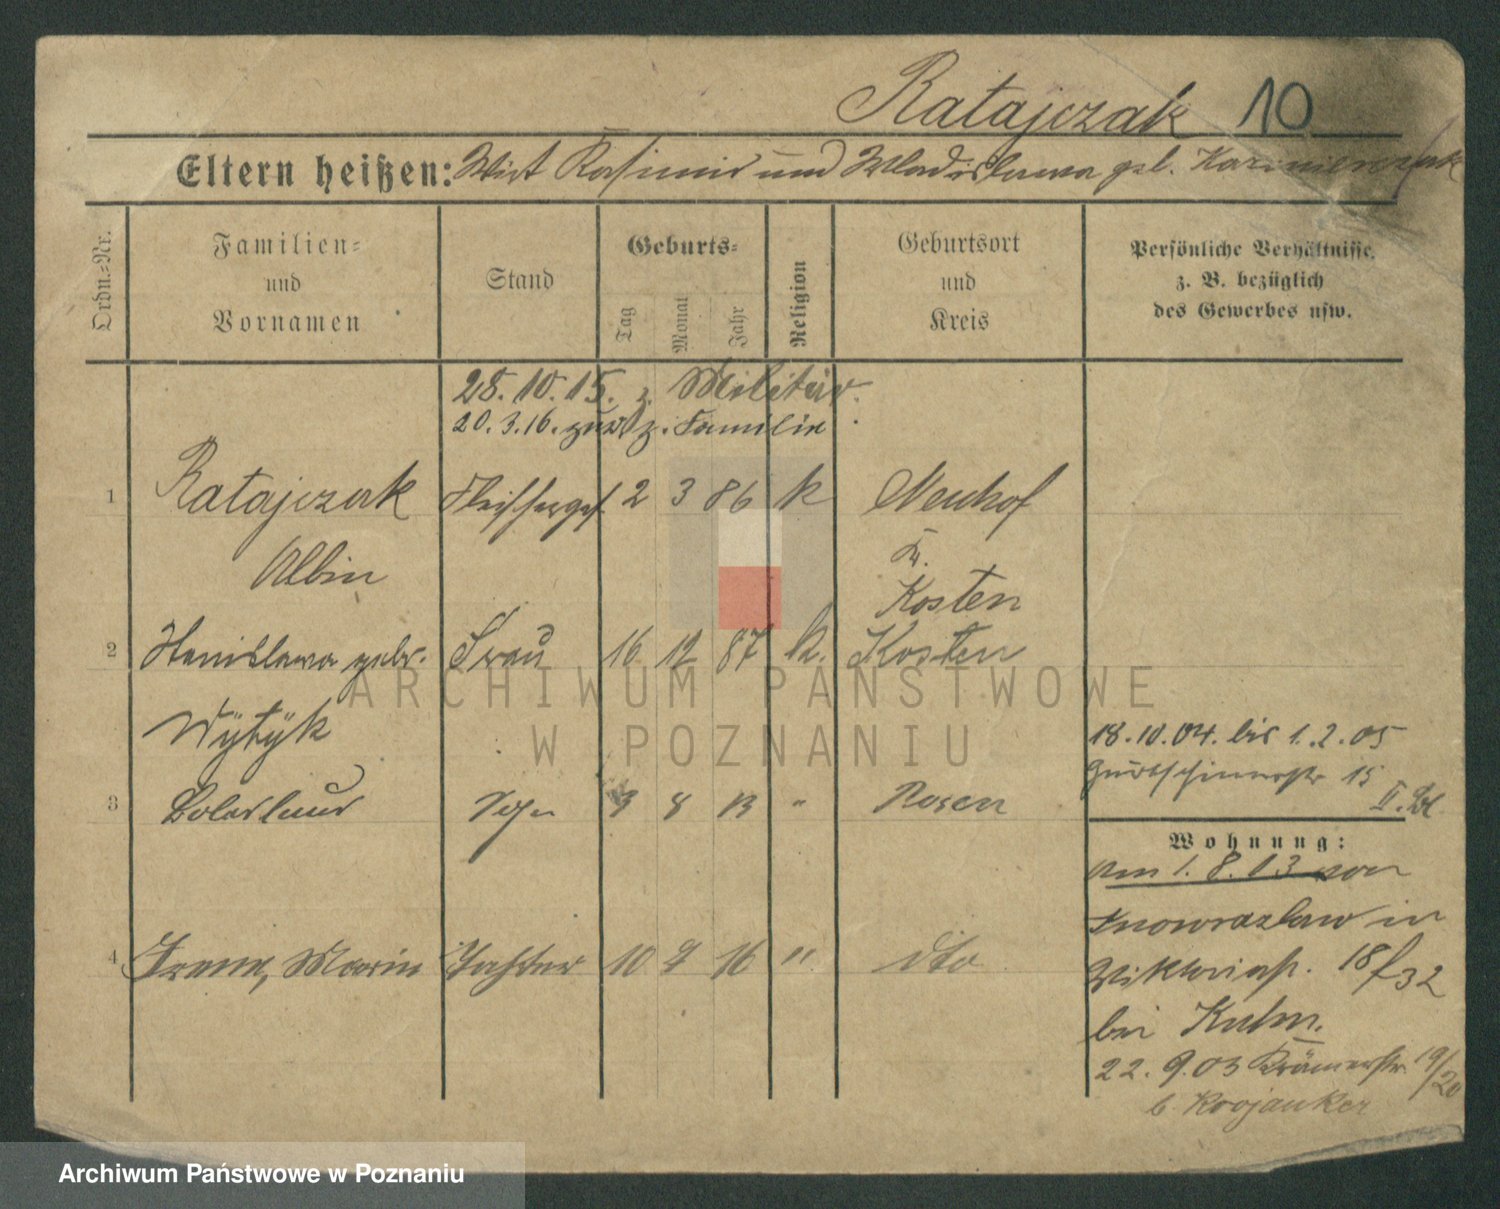 Ratajczak 10
Eltern heißen: Wirt Kasimir und Wladislawa geb. Kazmierczak
Ordn.-Nr.
Familien-
und
Vornamen
Stand
Geburts-
Tag
Monat
Jahr
Religion
Geburtsort
und
Kreis
Persönliche Verhältnisse,
z. B. bezüglich
des Gewerbes usw.
28.10.15. z. Militär.
20.3.16. zur. z. Familie
1 Ratajczak Fleischerges. 2 3 86 k Neuhof
Albin Kr.
Kosten
2 Stanislawa gebr. Frau 16 12 87 k. Kosten
Wÿtÿk
18.10.04. bis 1.2.05
Gurtschinerstr 15
II. Bl.
3 Boleslaus Sohn 3 8 13 " Posen
Wohnung:
am 1.8.03 von
Inowrazlaw in
4 Irene, Marie Tochter 10 9 16 " dto
Viktoriastr. 18/32
bei Kulm.
22.9.03 Krämerstr 19/20
b.
ARCHIWUM PAŃSTWOWE
W POZNANIU
Archiwum Państwowe w Poznaniu